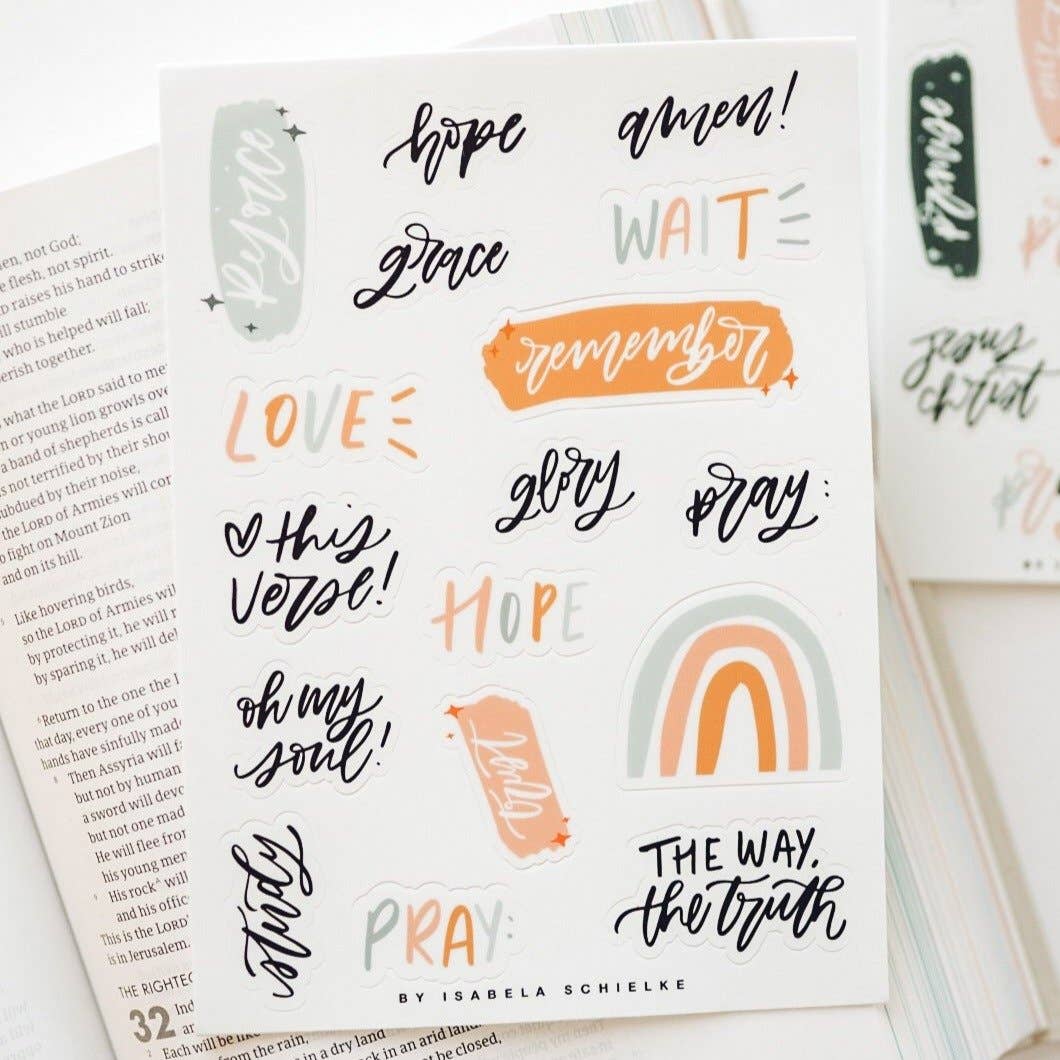 Rejoice
hope
amen!
grace
WAIT
remember
LOVE
glory
pray:
this
verse!
HOPE
oh my
soul!
study
PRAY:
THE WAY.
the truth
BY ISABELA SCHIELKE
jesus
christ
not God;
flesh, not spirit.
raises his hand to strike
stumble
who is helped will fall;
perish together.
what the LORD said to me
or young lion growls over
a band of shepherds is call
not terrified by their shou
subdued by their noise,
the LORD of Armies will com
to fight on Mount Zion
and on its hill.
5 Like hovering birds,
so the LORD of Armies wil
by protecting it, he will r
by sparing it, he will del
6 Return to the one the I
that day, every one of you
hands have sinfully made
8 Then Assyria will fa
but not by human
a sword will devo
but not one made
He will flee from
his young mer
9 His rock^ will
and his offic
This is the LORD'
is in Jerusalem.
THE RIGHTEO
32 Ind
2 Each will be like
from the rain,
in a dry land
in an arid land